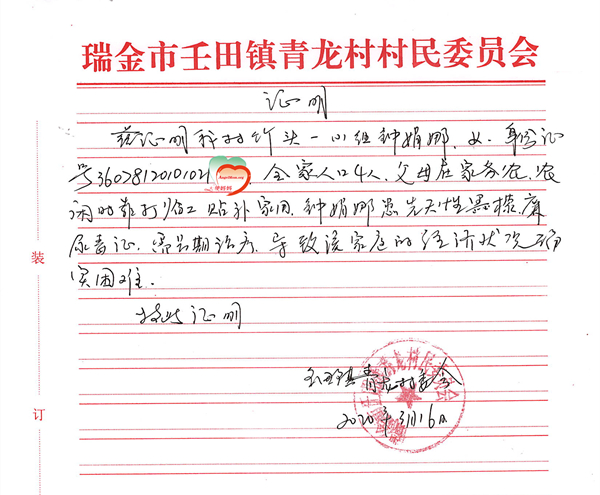 瑞金市壬田镇青龙村村民委员会
证明
兹证明我村竹头一小组钟娟娜，女，身份证
号36078120101021，全家人口4人，父母在家务农，农
闲时靠打临工贴补家用，钟娟娜患先天性
尿毒证，需长期治疗，导致该家庭的经济状况确
实困难。
特此证明
壬田镇青龙村委会
2020年3月16日
装
订